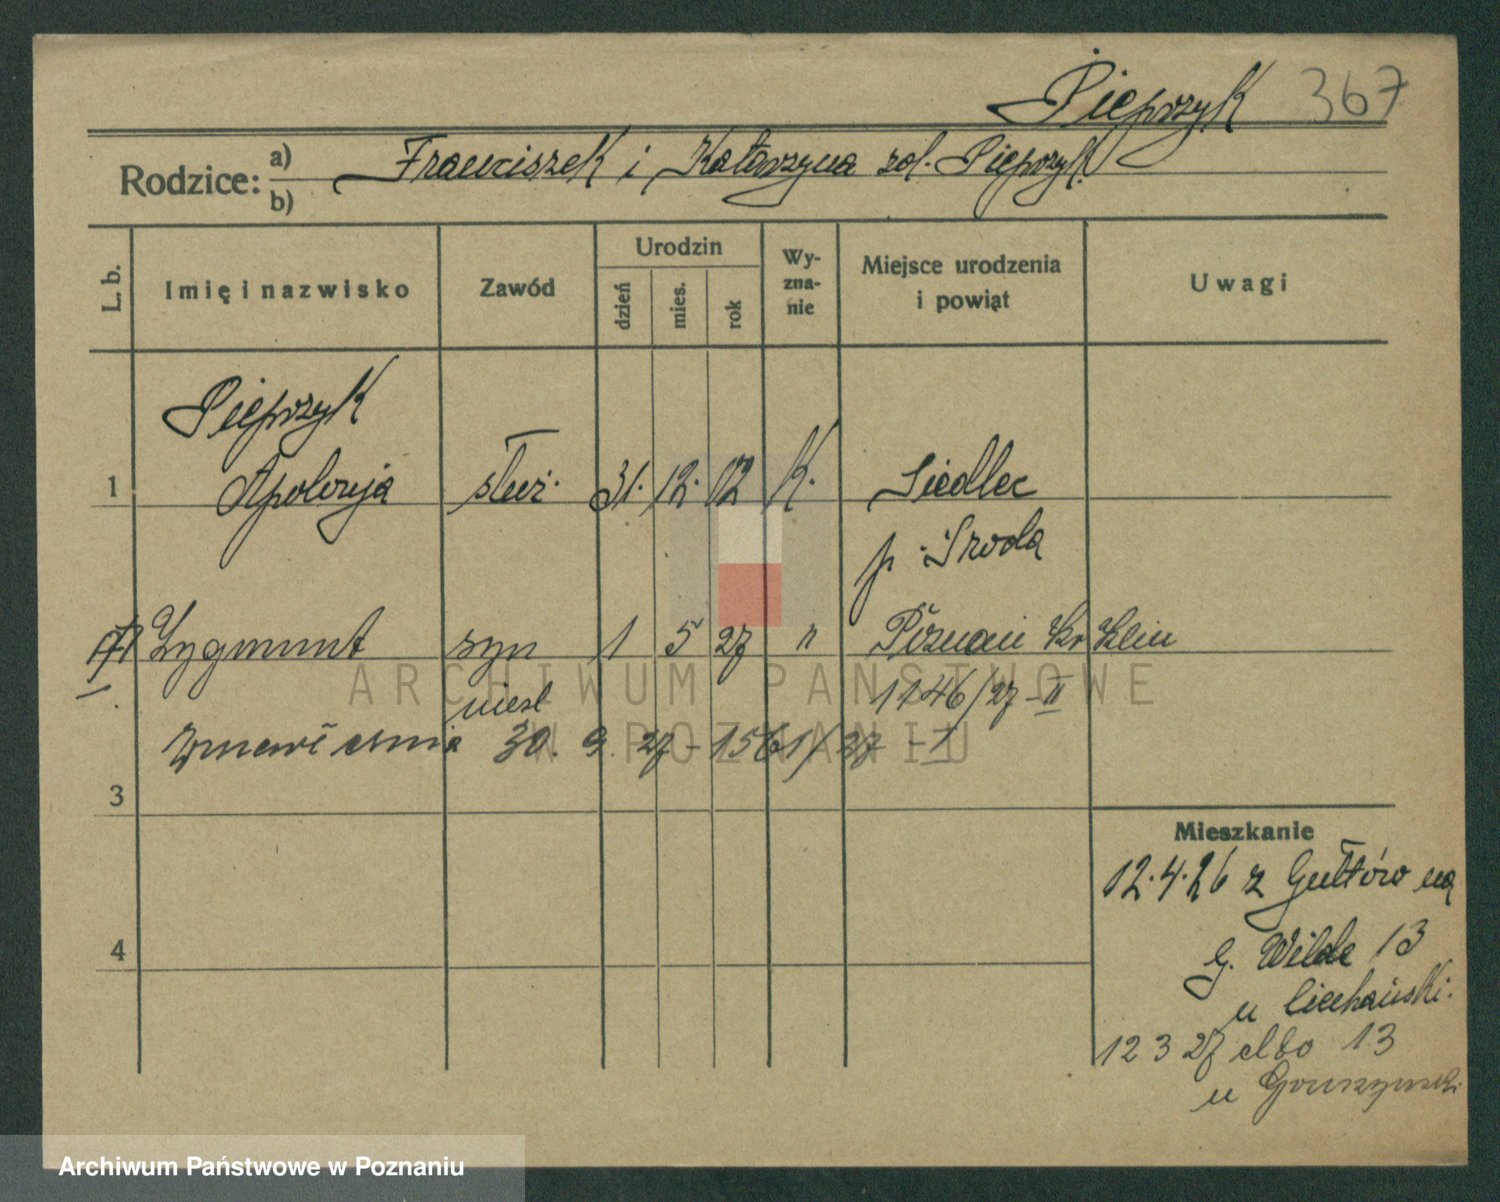 Pieprzyk 367
Rodzice: a) Franciszek i Katarzyna rol. Pieprzyk
b)
L. b. Imię i nazwisko Zawód Urodzin dzień mies. rok Wy-zna-nie Miejsce urodzenia i powiąt Uwagi
Pieprzyk
1 Apolonja służ. 31. 12. 12 K. Siedlec
p. Środa
Zygmunt syn 1 5 27 " Poznań Kr Klin
1146/27 - II
30. 9. 27 - 1561/27 - I
3
Mieszkanie
12.4.26 z Gułtów na
4
G. Wilde 13
u Ciechański.
12 3 27 13
u
ARCHIWUM PAŃSTWOWE
W POZNANIU
Archiwum Państwowe w Poznaniu